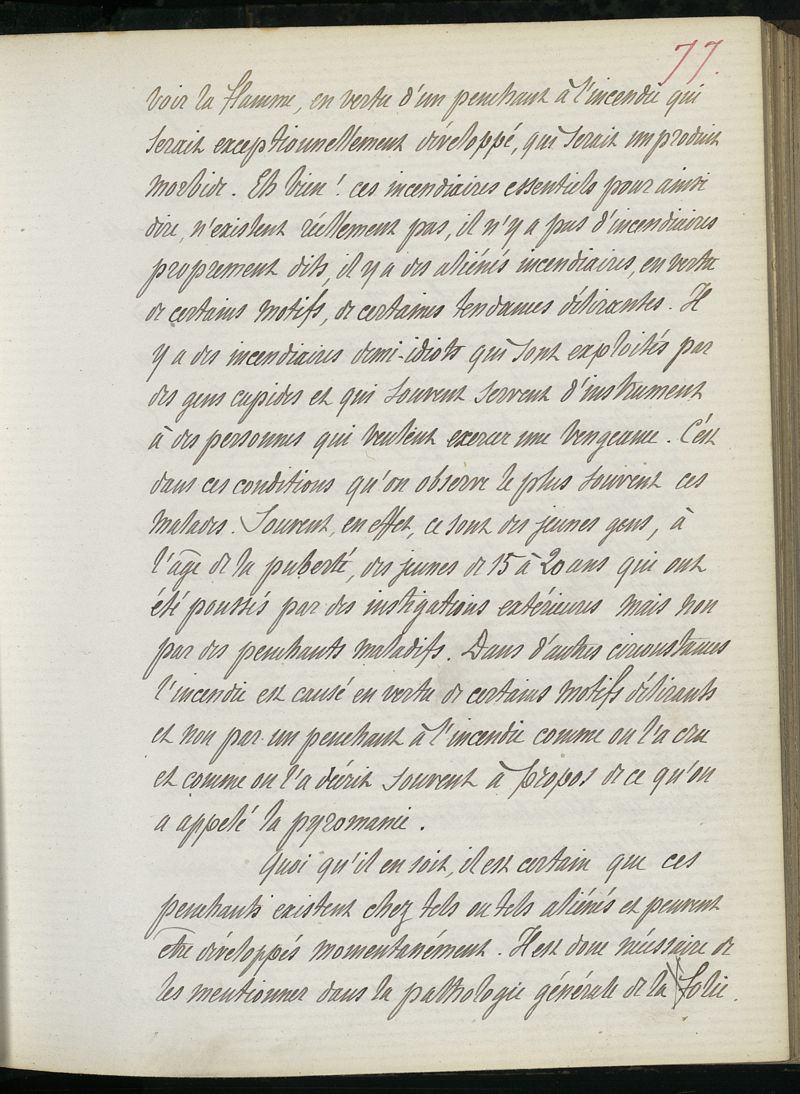 77.
voir la flamme, en vertu d'un penchant à l'incendie qui
serait exceptionnellement développé, qui serait un produit
morbide. Eh bien! ces incendiaires essentiels pour ainsi
dire, n'existent réellement pas, il n'y a pas d'incendiaires
proprement dits, il y a des aliénés incendiaires, en vertu
de certains motifs, de certaines tendances délirantes. Il
y a des incendiaires demi-idiots qui sont exploités par
des gens cupides et qui souvent servent d'instrument
à des personnes qui veulent exercer une vengeance. C'est
dans ces conditions qu'on observe le plus souvent ces
malades. Souvent, en effet, ce sont des jeunes gens, à
l'âge de la puberté, des jeunes de 15 à 20 ans qui ont
été poussés par des instigations extérieures mais non
par des penchants maladifs. Dans d'autres circonstances
l'incendie est causé en vertu de certains motifs délirants
et non par un penchant à l'incendie comme on l'a cru
et comme on l'a décrit souvent à propos de ce qu'on
a appelé la pyromanie.
Quoi qu'il en soit, il est certain que ces
penchants existent chez tels ou tels aliénés et peuvent
être développés momentanément. Il est donc nécessaire de
les mentionner dans la pathologie générale de la folie.